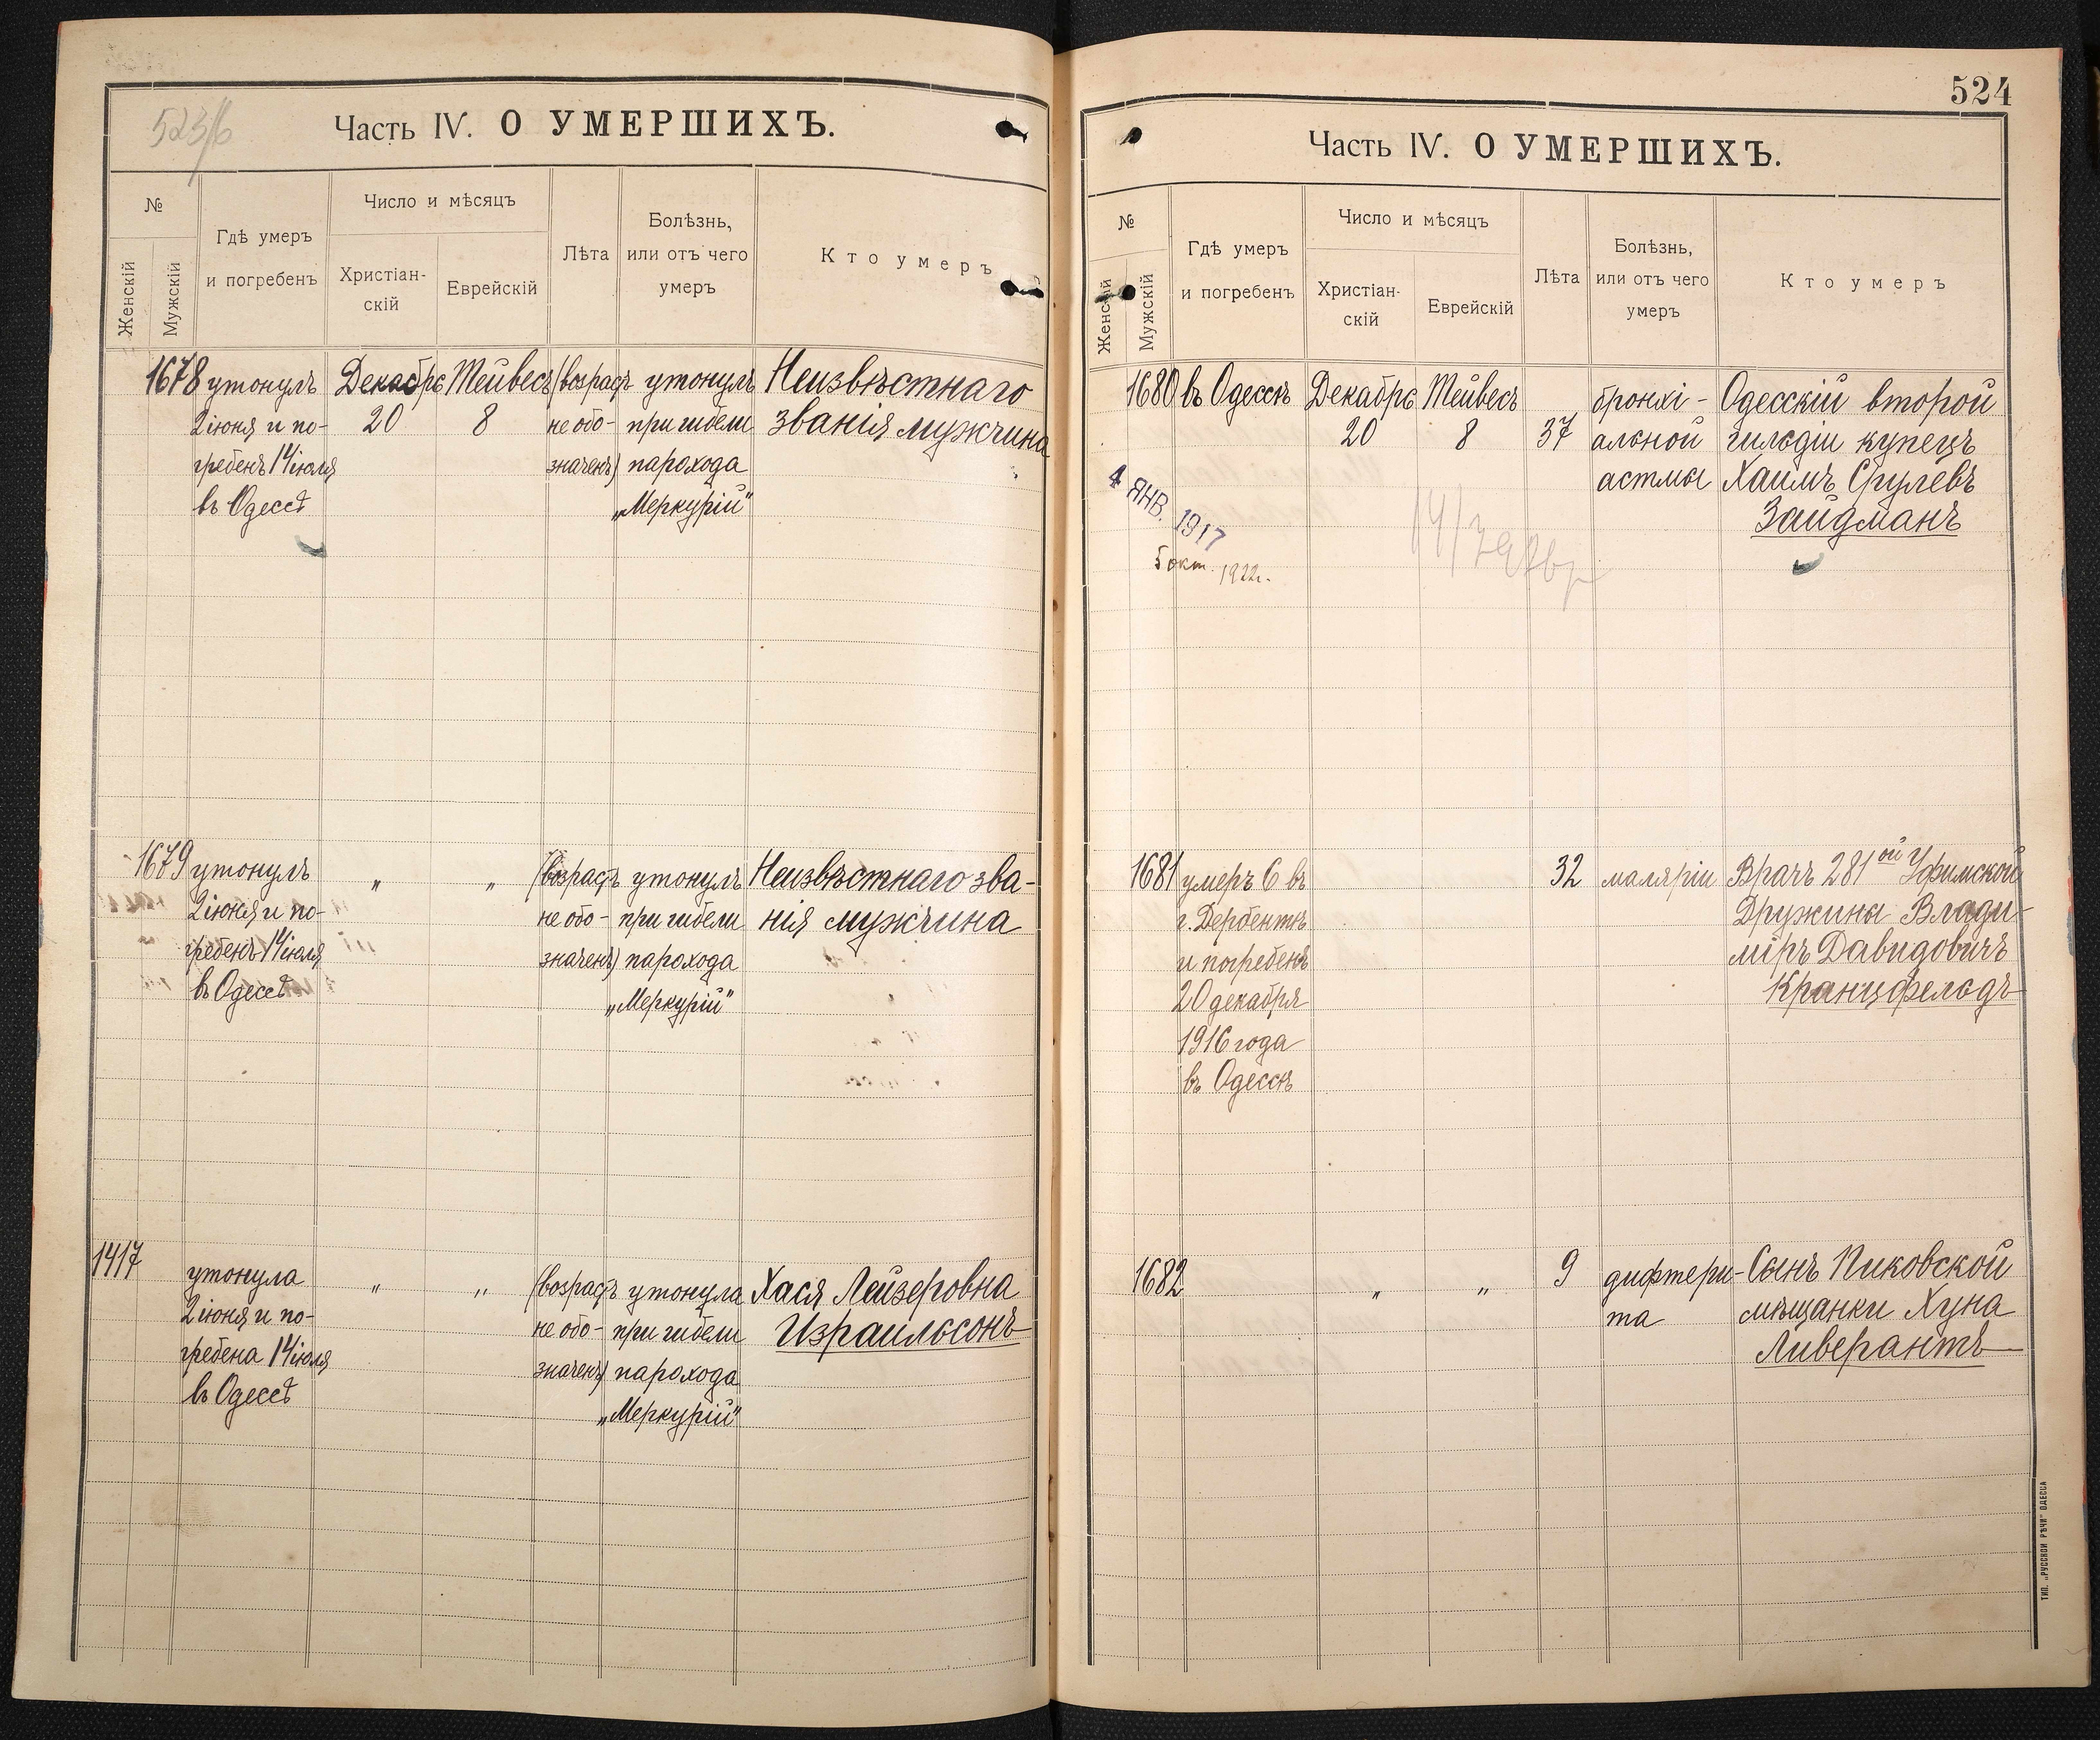 523/б
Часть IV. О УМЕРШИХЪ.
№
Женскій
Мужскій
Гдѣ умеръ
и погребенъ
Число и мѣсяцъ
Христіан-
скій
Еврейскій
Лѣта
Болѣзнь,
или отъ чего
умеръ
Кто умеръ
1678 утонулъ Декабрь Тейвесъ (возрастъ утонулъ Неизвѣстнаго
2 іюня и по- 20 8 не обо- при гибели званія мужчина
гребенъ 14 іюля значенъ) парохода
въ Одессѣ „Меркурій"
1679 утонулъ „ „ (возрастъ утонулъ Неизвѣстнаго зва-
2 іюня и по- не обо- при гибели нія мужчина
гребенъ 14 іюля значенъ) парохода
въ Одессѣ „Меркурій"
1417 утонула „ „ (возрастъ утонула Хася Лейзеровна
2 іюня и по- не обо- при гибели Израильсонъ
гребена 14 іюля значенъ) парохода
въ Одессѣ „Меркурій"
524
Часть IV. О УМЕРШИХЪ.
№
Женскій
Мужскій
Гдѣ умеръ
и погребенъ
Число и мѣсяцъ
Христіан-
скій
Еврейскій
Лѣта
Болѣзнь,
или отъ чего
умеръ
Кто умеръ
1680 въ Одессѣ Декабрь Тейвесъ бронхі- Одесскій второй
20 8 37 альной гильдіи купецъ
астмы Хаимъ Срулевъ
Зайдманъ
4 ЯНВ. 1917
5 окт. 1922г.
1681 умеръ 6 въ 32 маляріи Врачъ 281ой Уфимской
г. Дербентѣ Дружины Влади-
и погребенъ міръ Давидовичъ
20 декабря Кранцфельдъ
1916 года
въ Одессѣ
1682 „ „ 9 дифтери- Сынъ Пиковской
та мѣщанки Хуна
Ливерантъ
ТИП. „РУССКОЙ РѢЧИ" ОДЕССА